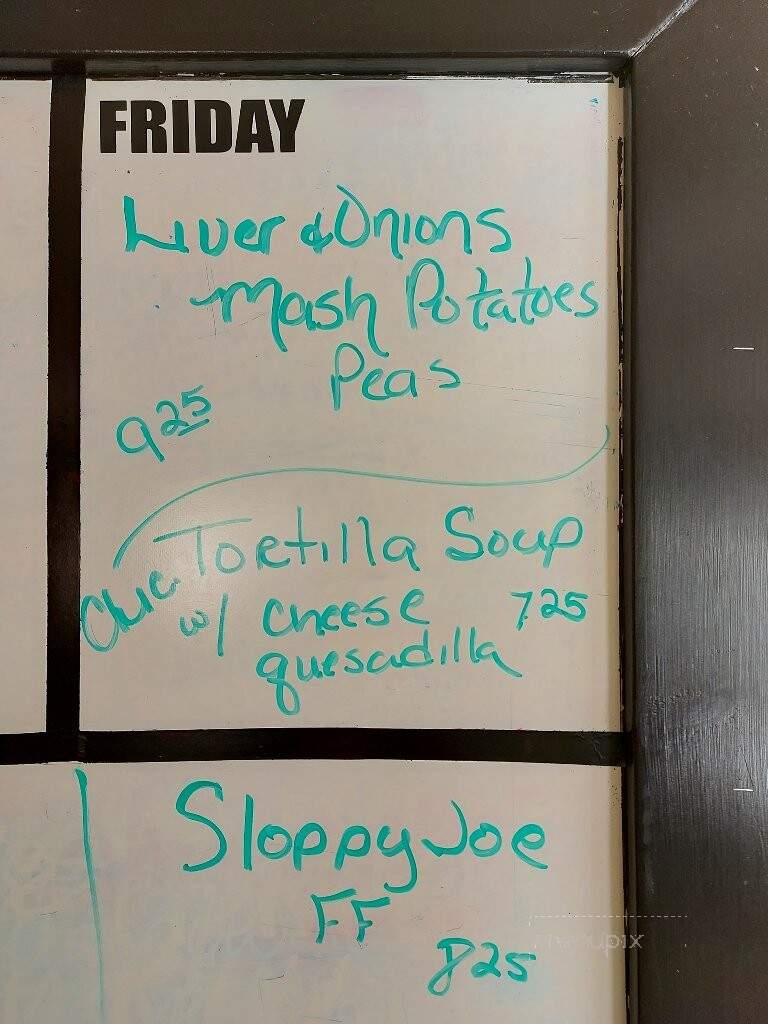 FRIDAY
Liver & Onions
Mash Potatoes
Peas
925
Chic Tortilla Soup
w/ cheese 725
quesadilla
Sloppy Joe
FF
825